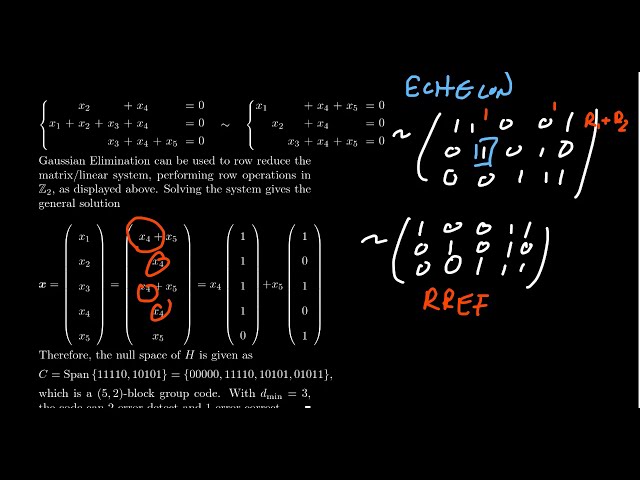 x₂ + x₄ = 0
x₁ + x₂ + x₃ + x₄ = 0
x₃ + x₄ + x₅ = 0
∼
x₁ + x₄ + x₅ = 0
x₂ + x₄ = 0
x₃ + x₄ + x₅ = 0
Gaussian Elimination can be used to row reduce the
matrix/linear system, performing row operations in
ℤ₂, as displayed above. Solving the system gives the
general solution
x = ( x₁ ) = ( x₄ + x₅ ) = x₄ ( 1 ) + x₅ ( 1 )
( x₂ ) ( x₄ ) ( 1 ) ( 0 )
( x₃ ) ( x₄ + x₅ ) ( 1 ) ( 1 )
( x₄ ) ( x₄ ) ( 1 ) ( 0 )
( x₅ ) ( x₅ ) ( 0 ) ( 1 )
Therefore, the null space of H is given as
C = Span {11110, 10101} = {00000, 11110, 10101, 01011},
which is a (5, 2)-block group code. With d_min = 3,
the code can 2 error detect and 1 error correct.
ECHELON
1 1
R₁ + R₂
∼ ( 1 1 0 0 1 )
( 0 1 0 1 0 )
( 0 0 1 1 1 )
∼ ( 1 0 0 1 1 )
( 0 1 0 1 0 )
( 0 0 1 1 1 )
RREF